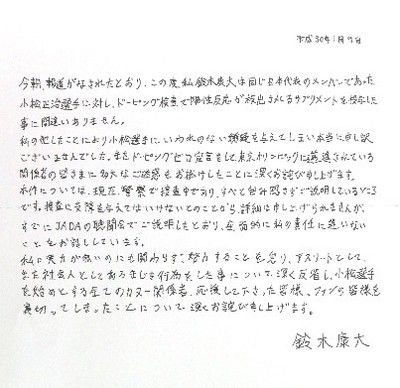 平成30年1月9日
今朝、報道がなされたとおり、この度、私鈴木康大は同じ日本代表のメンバーであった
小松正治選手に対し、ドーピング検査で陽性反応が検出されるサプリメントを投与した
事に間違いありません。
私の犯したことにより小松選手に、いわれのない損害を与えてしまい本当に申し訳
ございませんでした。またドーピングゼロ宣言をして東京オリンピックに邁進されている
関係者の皆さまに多大なご迷惑をお掛けしたことに深くお詫び申し上げます。
本件については、現在、警察で捜査中であり、すべて包み隠さずご説明しているところ
です。捜査に支障を与えてはいけないとのことから、詳細は申し上げられませんが、
すでにJADAの聴聞会でご説明したとおり、全面的に私の責任に違いない
ことをお話ししています。
私に実力が無いのにも関わらず、努力することを怠り、アスリートとして、
また社会人としてあるまじき行為をした事について、深く反省し、小松選手
を始めとする全てのカヌー関係者、応援して下さった皆様、ファンの皆様を
裏切ってしまったことについて深くお詫び申し上げます。
鈴木康大